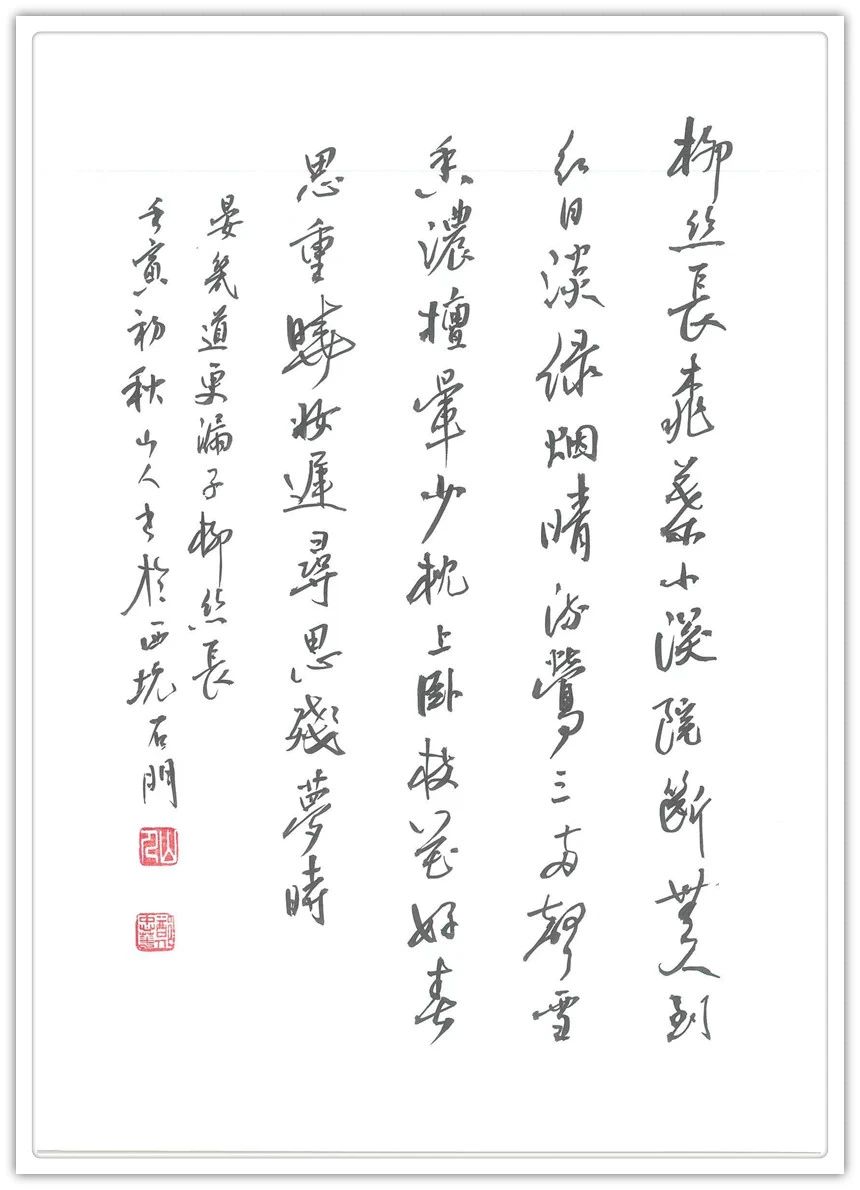 柳丝長桃葉小深院斷無人到
红日淡绿烟晴流鶯三两聲雪
香濃檀暈少枕上卧枝花好春
思重曉妆遲尋思殘夢時
晏幾道更漏子柳丝長
壬寅初秋山人书於西坑石門
山人